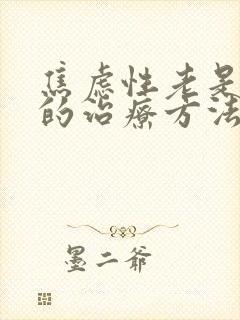 焦虑性老是
的治疗方法
墨二爷